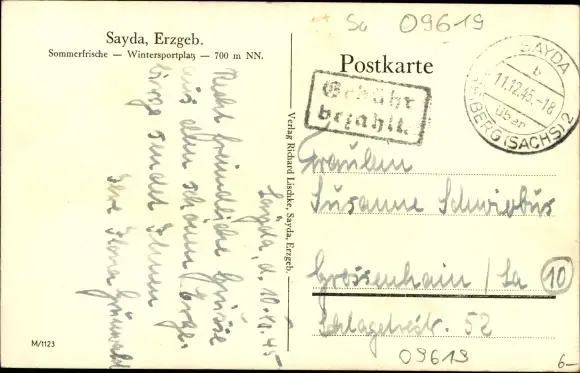 Sa 09619
Sayda, Erzgeb.
Sommerfrische — Wintersportplatz — 700 m NN.
Postkarte
SAYDA
b
11.12.45.-18
über
FREIBERG (SACHS) 2
Gebühr
bezahlt.
Sayda, d. 10.12.45
Recht freundliche Grüsse
aus dem schönen Erzge-
birge sendet Ihnen
Ihre Ilona Grünwald
Verlag Richard Lischke, Sayda, Erzgeb.
Fräulein
Susanne Schwiebus
Grossenhain / Sa
10
Schlageterstr. 52
09619
M/1123
6-